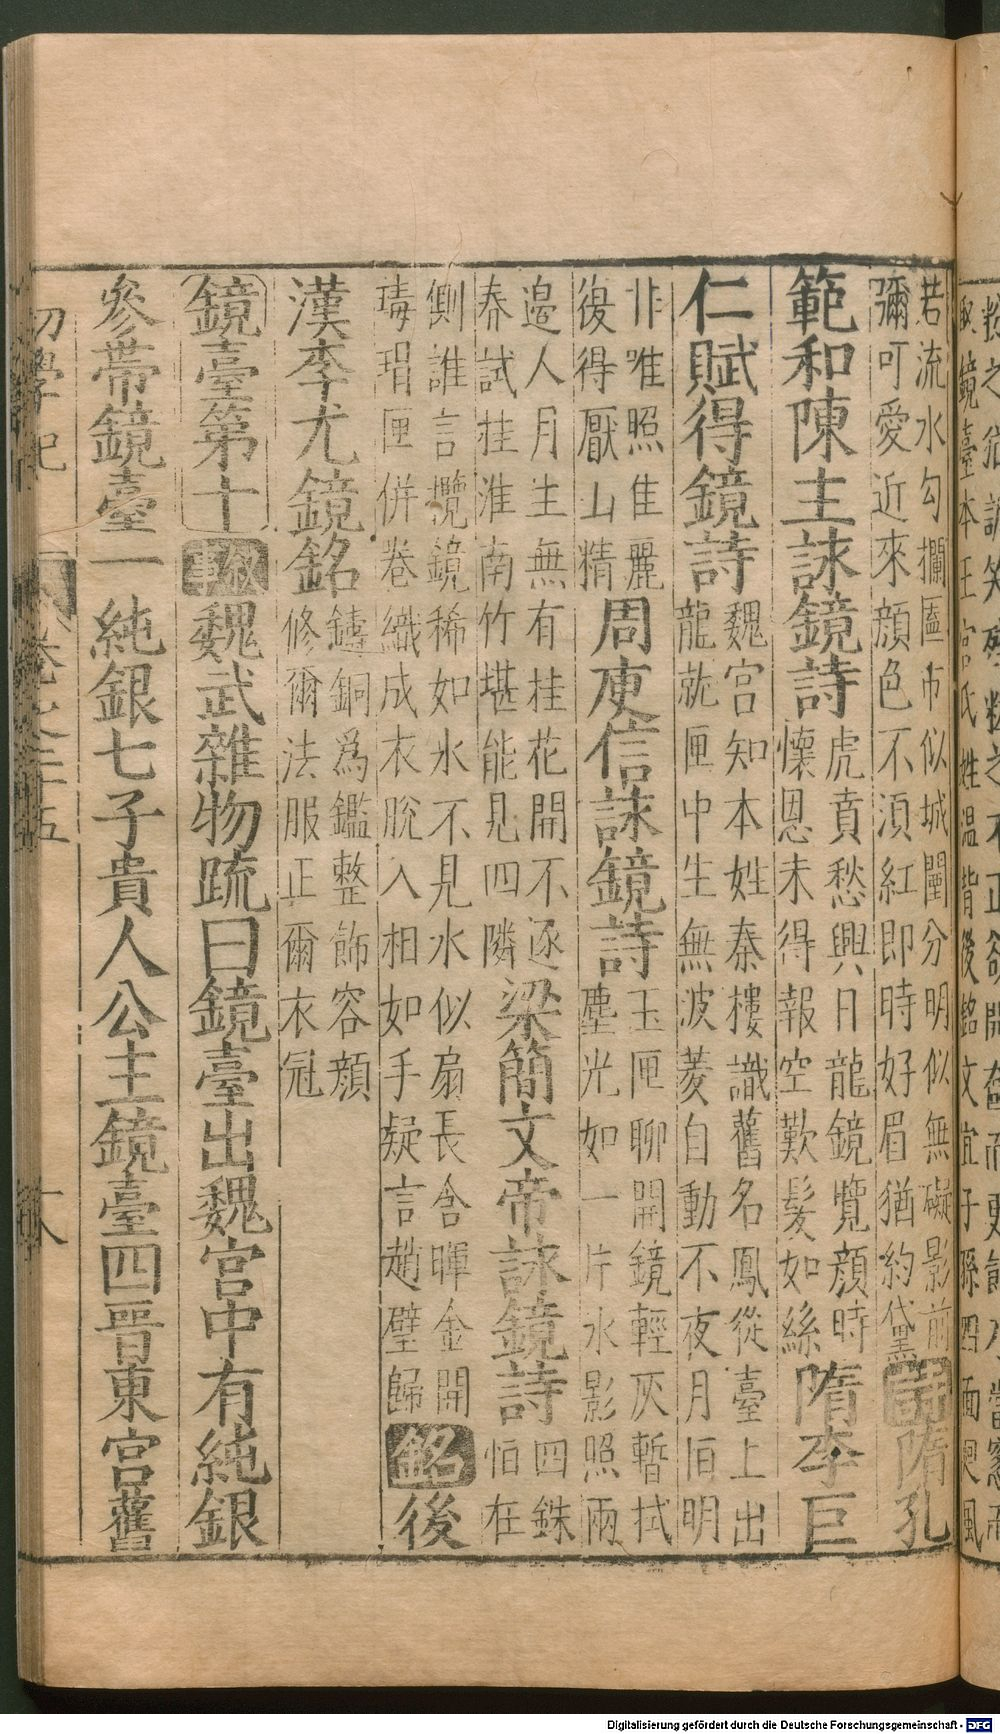 若流水勾攔匼帀似城闉分明似無礙影前
彌可愛近來顔色不須紅即時好眉猶約黛
詩隋孔
範和陳主詠鏡詩
虎賁愁興日龍鏡覽顔時
懷恩未得報空歎髮如絲
隋李巨
仁賦得鏡詩
魏宮知本姓秦樓識舊名鳳從臺上出
龍就匣中生無波菱自動不夜月恒明
非唯照佳麗
復得厭山精
周庾信詠鏡詩
玉匣聊開鏡輕灰暫拭
塵光如一片水影照兩
邉人月生無有桂花開不逐
春試挂淮南竹堪能見四隣
梁簡文帝詠鏡詩
四銖
恒在
側誰言攬鏡稀如氷不見水似扇長含暉金開
瑇瑁匣併卷織成衣脫入相如手疑言趙璧歸
銘後
漢李尤鏡銘
鑄銅爲鑑整飾容顔
修爾法服正爾衣冠
鏡臺第十
敘事
魏武雜物疏曰鏡臺出魏宮中有純銀
參帶鏡臺一純銀七子貴人公主鏡臺四晋東宮舊
初學記
卷之二十五
鏡臺本王宮氏姓温背後銘文宜子孫四面
Digitalisierung gefördert durch die Deutsche Forschungsgemeinschaft - DFG